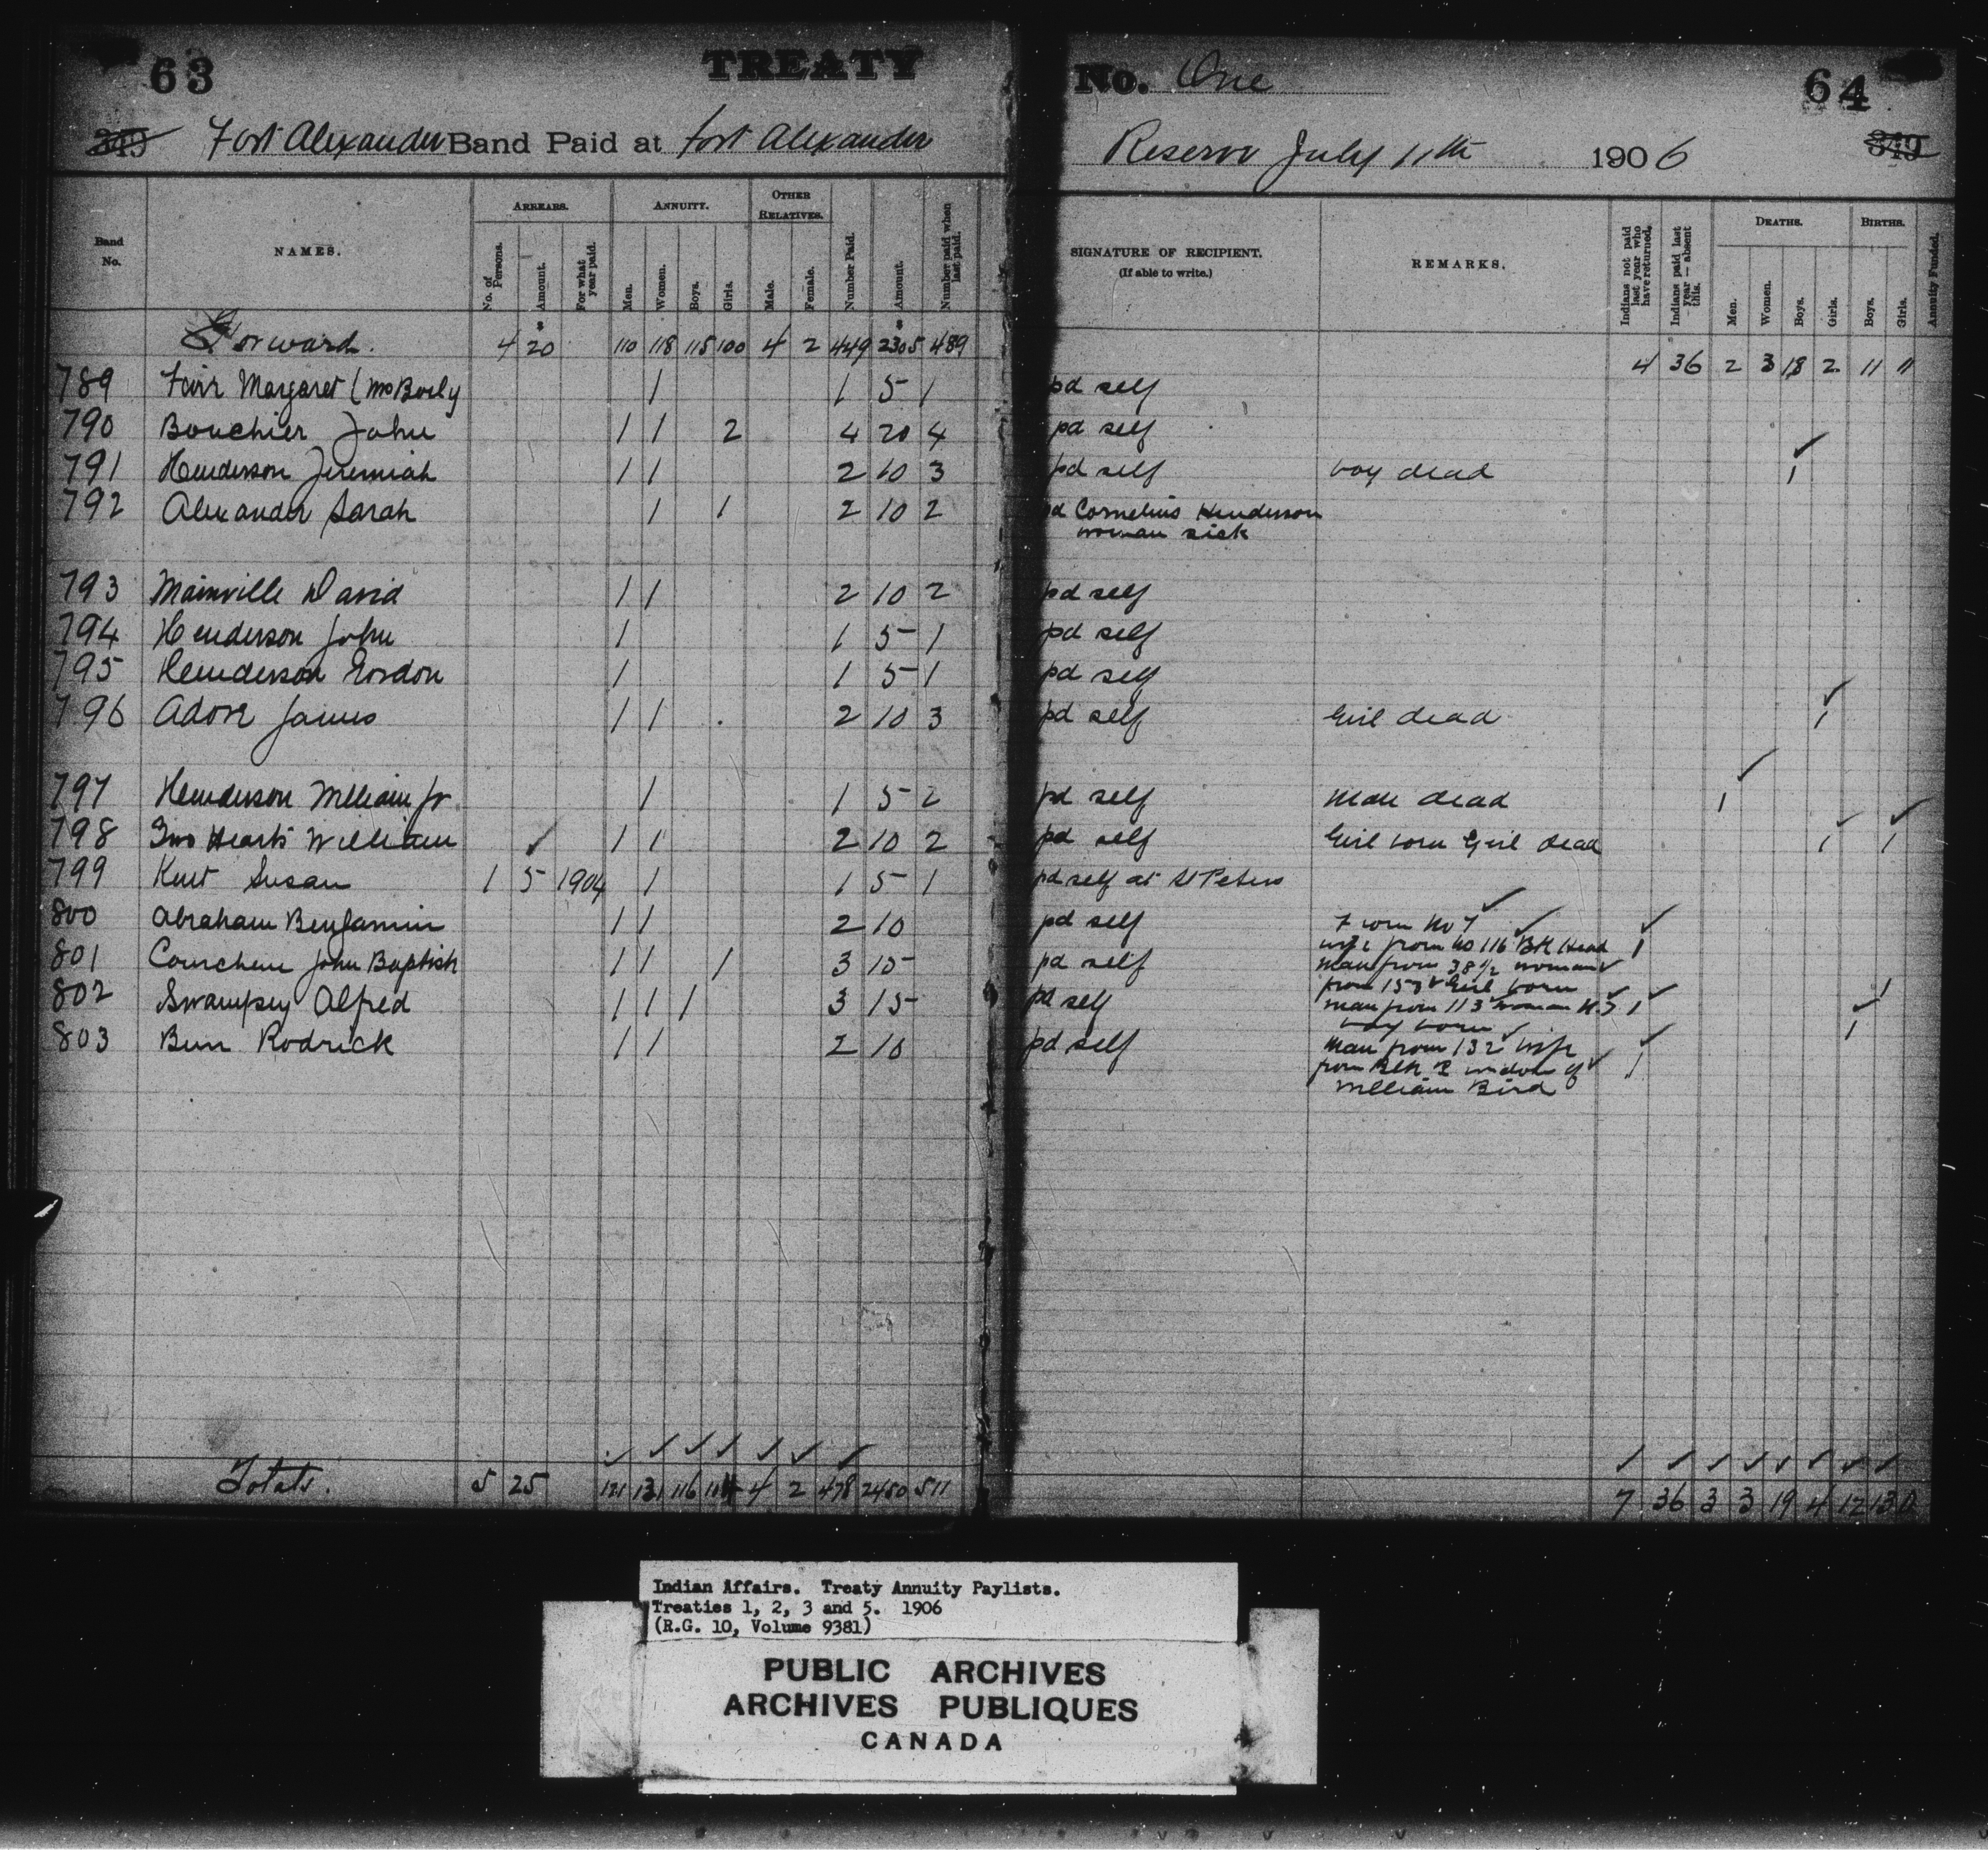 63 TREATY No. One 64
349 Fort Alexander Band Paid at Fort Alexander Reserve July 11th 1906 349
Band No. NAMES. ARREARS. ANNUITY. OTHER RELATIVES. Number Paid. Amount. Number paid when last paid. SIGNATURE OF RECIPIENT. (If able to write.) REMARKS. Indians not paid last year who have returned. Indians paid last year — absent this. DEATHS. BIRTHS. Annuity Funded.
No. of Persons. Amount. For what year paid. Men. Women. Boys. Girls. Male. Female. Men. Women. Boys. Girls. Boys. Girls.
Forward. 4 20 110 118 115 100 4 2 449 2305 489 4 36 2 3 18 2 11 11
789 Margaret 1 1 5 1 pd self
790 Bouchier John 1 1 2 4 20 4 pd self
791 Henderson Jeremiah 1 1 2 10 3 pd self boy dead 1
792 Alexander Sarah 1 1 2 10 2 pd Cornelius Henderson
woman sick
793 Mainville David 1 1 2 10 2 pd self
794 Henderson John 1 1 5 1 pd self
795 Henderson Gordon 1 1 5 1 pd self
796 James 1 1 2 10 3 pd self Girl dead 1
797 Henderson William Jr 1 1 5 2 pd self Man dead 1
798 Two Hearts William 1 1 2 10 2 pd self Girl born Girl dead 1 1
799 Kent Susan 1 5 1904 1 1 5 1 pd self at St Peters
800 Abraham Benjamin 1 1 2 10 pd self No 7
wife from No 116 1
801 Courchene John Baptish 1 1 1 3 15 pd self man from woman
from Girl born 1
802 Swampey Alfred 1 1 1 3 15 pd self man from 113 woman 1
boy born 1
803 Bun Rodrick 1 1 2 10 pd self Man from 132 wife
from widow of 1
William Bird
Totals. 5 25 121 131 116 104 4 2 478 2450 511 7 36 3 3 19 4 12 13 0
Indian Affairs. Treaty Annuity Paylists.
Treaties 1, 2, 3 and 5. 1906
(R.G. 10, Volume 9381)
PUBLIC ARCHIVES
ARCHIVES PUBLIQUES
CANADA